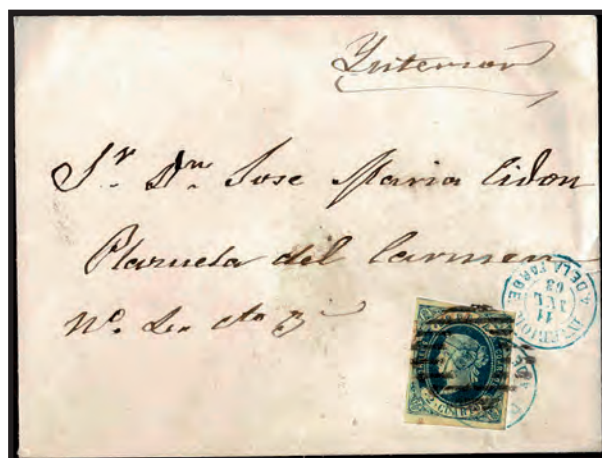 Interior
Sr. Dn. Jose Maria Lidon
Plazuela del Carmen
No. cto 3
INTERIOR
11
JUL
63
4. DE LA TARDE